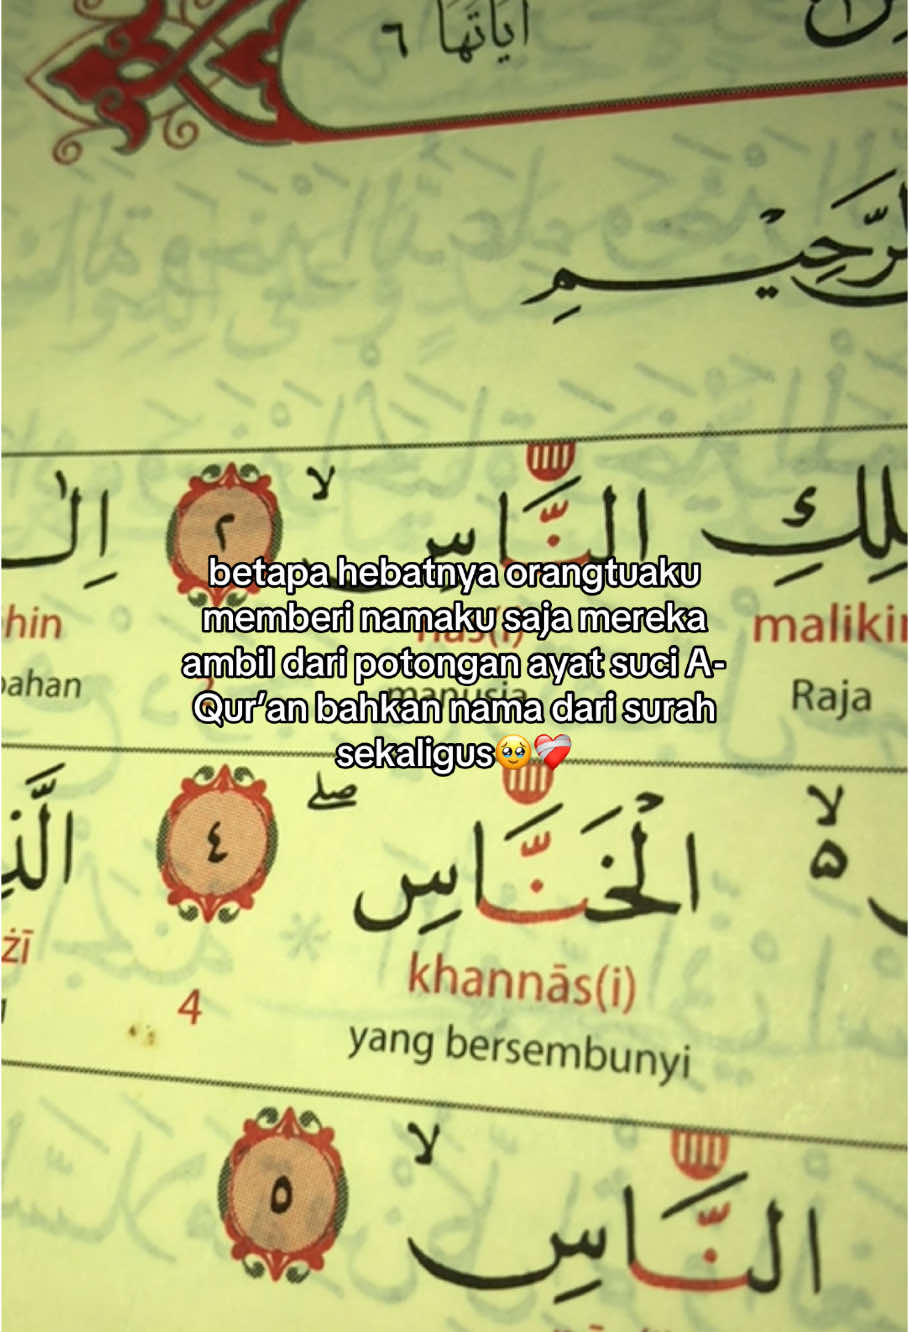 اٰيَاتُهَا ٦
الرَّحِيْمِ
النَّاسِۙ ٢
malikin
hin
Raja
betapa hebatnya orangtuaku
memberi namaku saja mereka
ambil dari potongan ayat suci A-
Qur’an bahkan nama dari surah
sekaligus🥹❤️‍🩹
nās(i)
manusia
الْخَنَّاسِۖ ٤
khannās(i)
żī
4
yang bersembunyi
النَّاسِۙ ٥